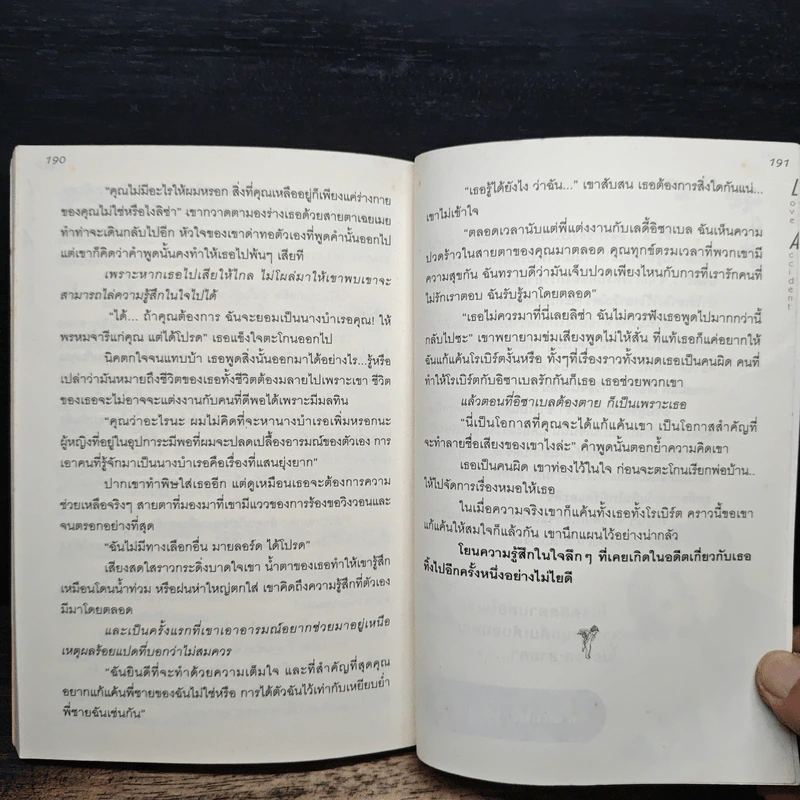 190
"คุณไม่มีอะไรให้ผมหรอก สิ่งที่คุณเหลืออยู่ก็เพียงแค่ร่างกาย
ของคุณไม่ใช่หรือไงลิซ่า" เขากวาดตามองร่างเธอด้วยสายตาเฉยเมย
ทำท่าจะเดินกลับไปอีก หัวใจของเขาด่าทอตัวเองที่พูดคำนั้นออกไป
แต่เขาก็คิดว่าคำพูดนั้นคงทำให้เธอไปพ้นๆ เสียที
เพราะหากเธอไปเสียให้ไกล ไม่โผล่มาให้เขาพบเขาจะ
สามารถไล่ความรู้สึกในใจไปได้
"ได้... ถ้าคุณต้องการ ฉันจะยอมเป็นนางบำเรอคุณ! ให้
พรหมจารีแก่คุณ แต่ได้โปรด" เธอแข็งใจตะโกนออกไป
นิคตกใจจนแทบบ้า เธอพูดสิ่งนั้นออกมาได้อย่างไร...รู้หรือ
เปล่าว่ามันหมายถึงชีวิตของเธอทั้งชีวิตต้องมลายไปเพราะเขา ชีวิต
ของเธอจะไม่อาจจะแต่งงานกับคนที่ดีพอได้เพราะมีมลทิน
"คุณว่าอะไรนะ ผมไม่คิดที่จะหานางบำเรอเพิ่มหรอกนะ
ผู้หญิงที่อยู่ในอุปการะมีพอที่ผมจะปลดเปลื้องอารมณ์ของตัวเอง การ
เอาคนที่รู้จักมาเป็นนางบำเรอคือเรื่องที่แสนยุ่งยาก"
ปากเขาทำพิษใส่เธออีก แต่ดูเหมือนเธอจะต้องการความ
ช่วยเหลือจริงๆ สายตาที่มองมาที่เขามีแววของการร้องขอวิงวอนและ
จนตรอกอย่างที่สุด
"ฉันไม่มีทางเลือกอื่น มายลอร์ด ได้โปรด"
เสียงสดใสราวกระดิ่งบาดใจเขา น้ำตาของเธอทำให้เขารู้สึก
เหมือนโดนน้ำท่วม หรือฝนห่าใหญ่ตกใส่ เขาคิดถึงความรู้สึกที่ตัวเอง
มีมาโดยตลอด
และเป็นครั้งแรกที่เขาเอาอารมณ์อยากช่วยมาอยู่เหนือ
เหตุผลร้อยแปดที่บอกว่าไม่สมควร
"ฉันยินดีที่จะทำด้วยความเต็มใจ และที่สำคัญที่สุดคุณ
อยากแก้แค้นพี่ชายของฉันไม่ใช่หรือ การได้ตัวฉันไว้เท่ากับเหยียบย่ำ
พี่ชายฉันเช่นกัน"
191
Love Accident
"เธอรู้ได้ยังไง ว่าฉัน..." เขาสับสน เธอต้องการสิ่งใดกันแน่...
เขาไม่เข้าใจ
"ตลอดเวลานับแต่พี่แต่งงานกับเลดี้อิซาเบล ฉันเห็นความ
ปวดร้าวในสายตาของคุณมาตลอด คุณทุกข์ตรมเวลาที่พวกเขามี
ความสุขกัน ฉันทราบดีว่ามันเจ็บปวดเพียงไหนกับการที่เรารักคนที่
ไม่รักเราตอบ ฉันรับรู้มาโดยตลอด"
"เธอไม่ควรมาที่นี่เลยลิซ่า ฉันไม่ควรฟังเธอพูดไปมากกว่านี้
กลับไปซะ" เขาพยายามข่มเสียงพูดไม่ให้สั่น ที่แท้เธอก็แค่อยากให้
ฉันแก้แค้นโรเบิร์ตงั้นหรือ ทั้งๆที่เรื่องราวทั้งหมดเธอเป็นคนผิด คนที่
ทำให้โรเบิร์ตกับอิซาเบลรักกันก็เธอ เธอช่วยพวกเขา
แล้วตอนที่อิซาเบลต้องตาย ก็เป็นเพราะเธอ
"นี่เป็นโอกาสที่คุณจะได้แก้แค้นเขา เป็นโอกาสสำคัญที่
จะทำลายชื่อเสียงของเขาไงล่ะ" คำพูดนั้นตอกย้ำความคิดเขา
เธอเป็นคนผิด เขาท่องไว้ในใจ ก่อนจะตะโกนเรียกพ่อบ้าน..
ให้ไปจัดการเรื่องหมอให้เธอ
ในเมื่อความจริงเขาก็แค้นทั้งเธอทั้งโรเบิร์ต คราวนี้ขอเขา
แก้แค้นให้สมใจก็แล้วกัน เขานึกแผนไว้อย่างน่ากลัว
โยนความรู้สึกในใจลึกๆ ที่เคยเกิดในอดีตเกี่ยวกับเธอ
ทิ้งไปอีกครั้งหนึ่งอย่างไม่ไยดี